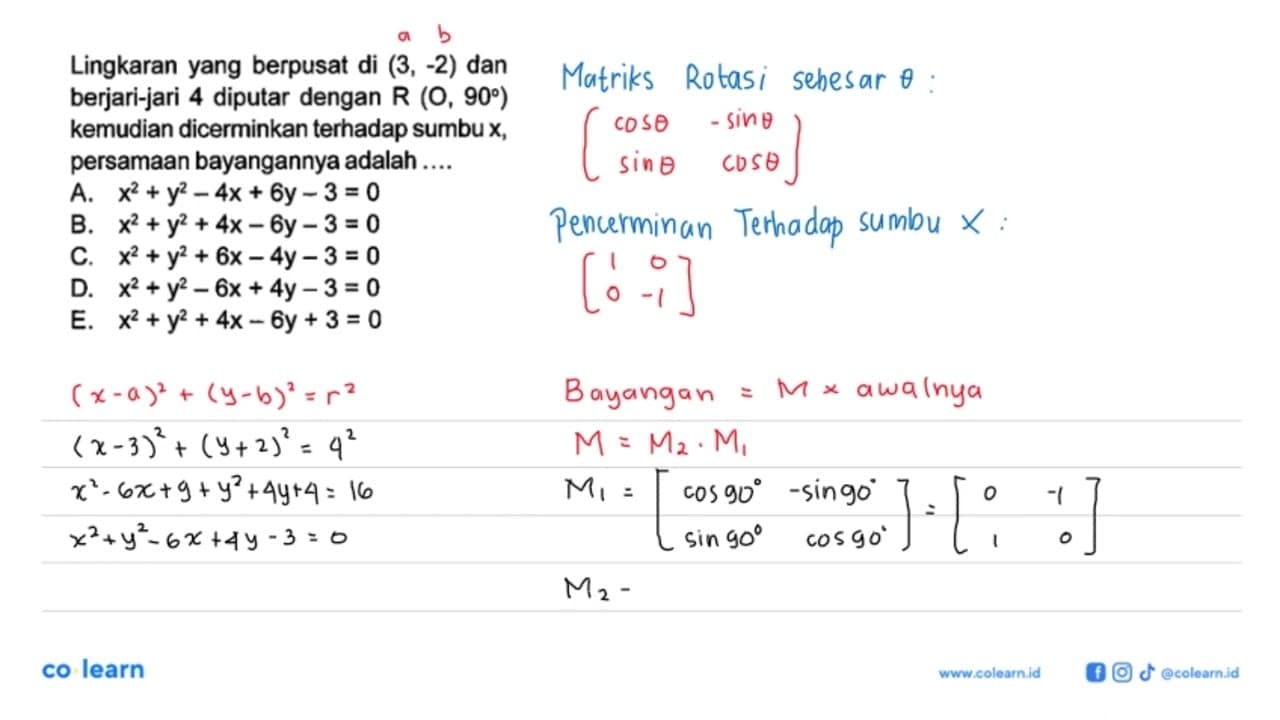 a b
Lingkaran yang berpusat di (3, -2) dan
berjari-jari 4 diputar dengan R (O, 90°)
kemudian dicerminkan terhadap sumbu x,
persamaan bayangannya adalah ....
A. x² + y² – 4x + 6y – 3 = 0
B. x² + y² + 4x – 6y – 3 = 0
C. x² + y² + 6x – 4y – 3 = 0
D. x² + y² – 6x + 4y – 3 = 0
E. x² + y² + 4x – 6y + 3 = 0
Matriks Rotasi sebesar θ :
[ cosθ -sinθ
sinθ cosθ ]
Pencerminan Terhadap sumbu X :
[ 1 0
0 -1 ]
(x-a)² + (y-b)² = r²
(x-3)² + (y+2)² = 4²
x²-6x+9+y²+4y+4 = 16
x²+y²-6x+4y-3 = 0
Bayangan = M × awalnya
M = M₂ . M₁
M₁ = [ cos90° -sin90° ] = [ 0 -1 ]
sin90° cos90° 1 0
M₂ -
co learn
www.colearn.id @colearn.id